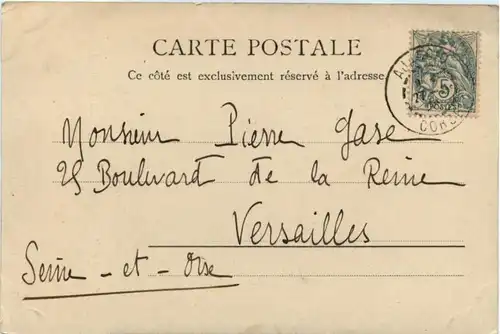 CARTE POSTALE
Ce côté est exclusivement réservé à l'adresse
5
Monsieur Pierre Gase
25 Boulevard de la Reine
Versailles
Seine - et - Oise